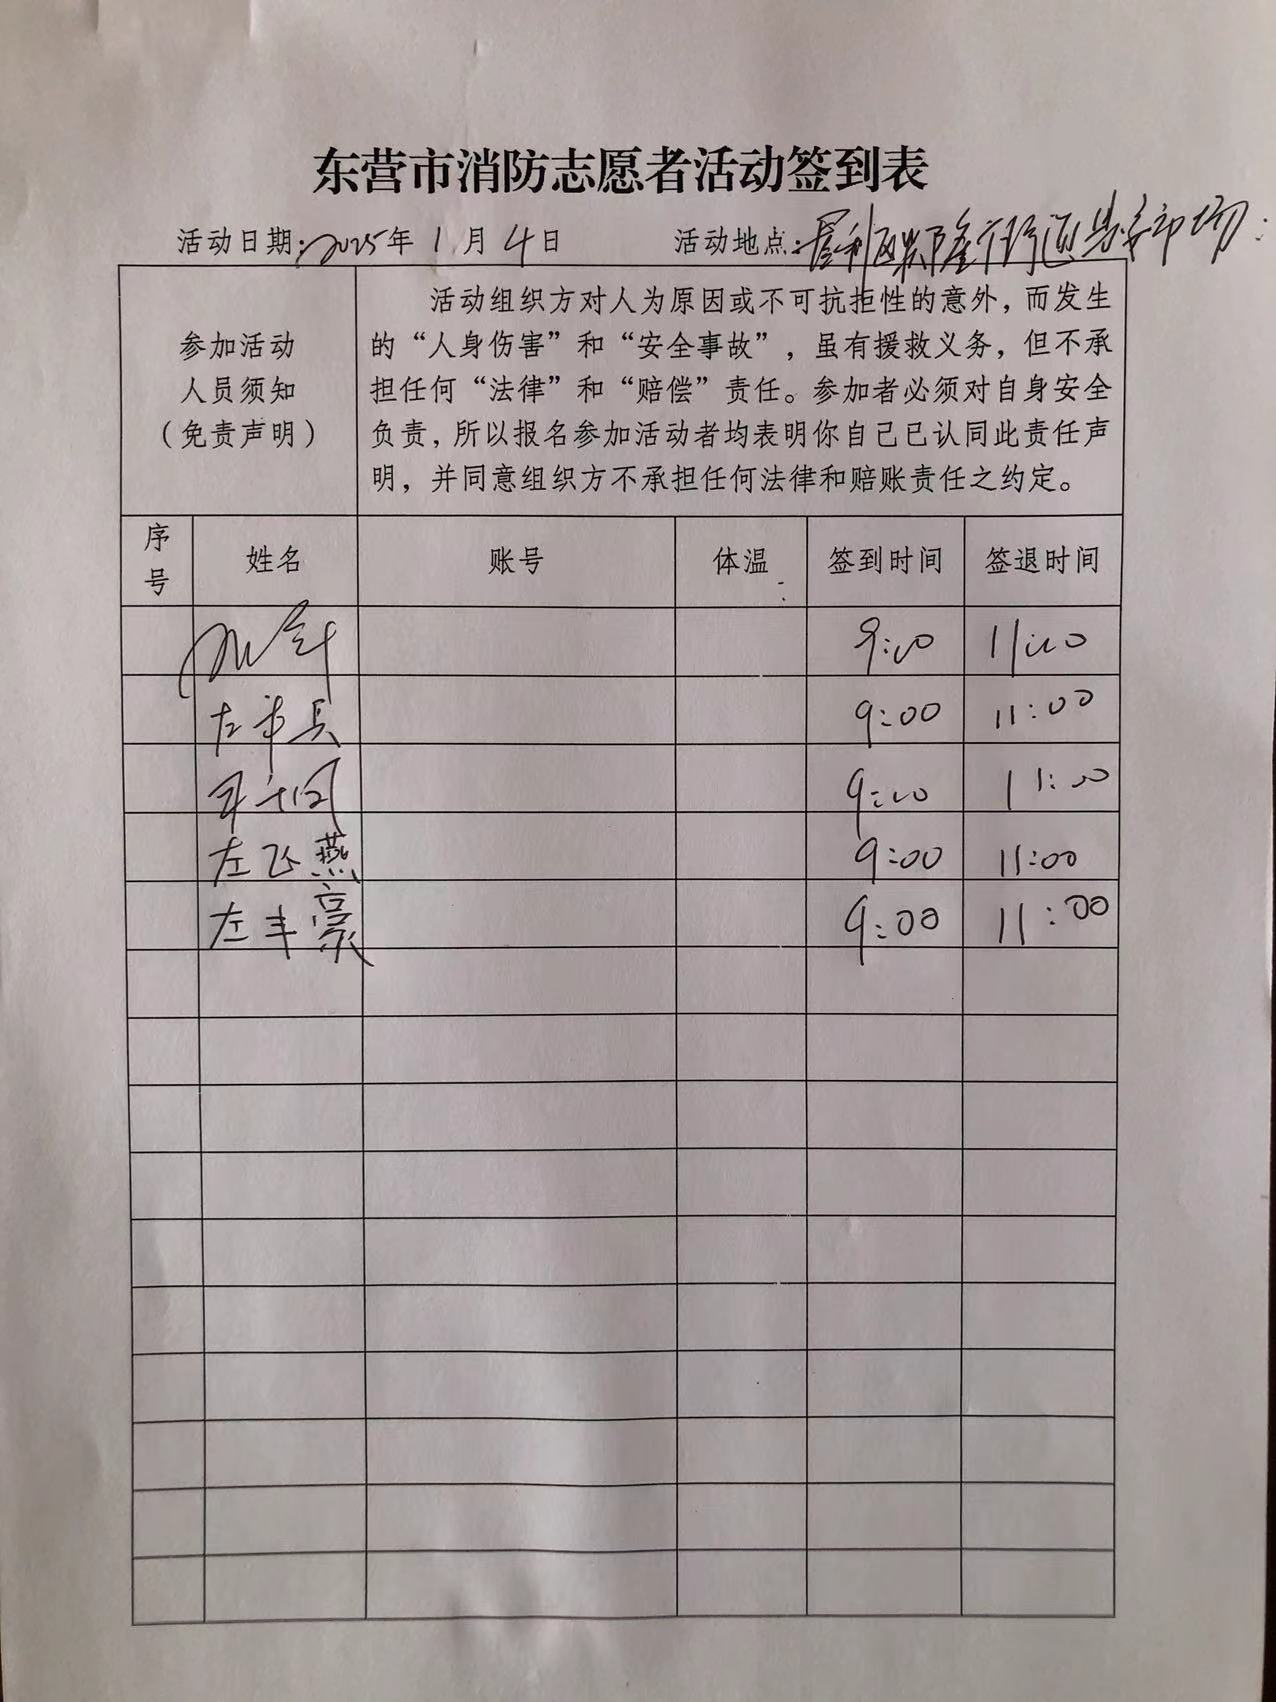 东营市消防志愿者活动签到表
活动日期:2025年1月4日 活动地点:垦利区
参加活动人员须知（免责声明）
活动组织方对人为原因或不可抗拒性的意外，而发生
的“人身伤害”和“安全事故”，虽有援救义务，但不承
担任何“法律”和“赔偿”责任。参加者必须对自身安全
负责，所以报名参加活动者均表明你自己已认同此责任声
明，并同意组织方不承担任何法律和赔账责任之约定。
序号 姓名 账号 体温 签到时间 签退时间
9:00 11:00
左 9:00 11:00
9:00 11:00
左飞燕 9:00 11:00
左丰豪 9:00 11:00